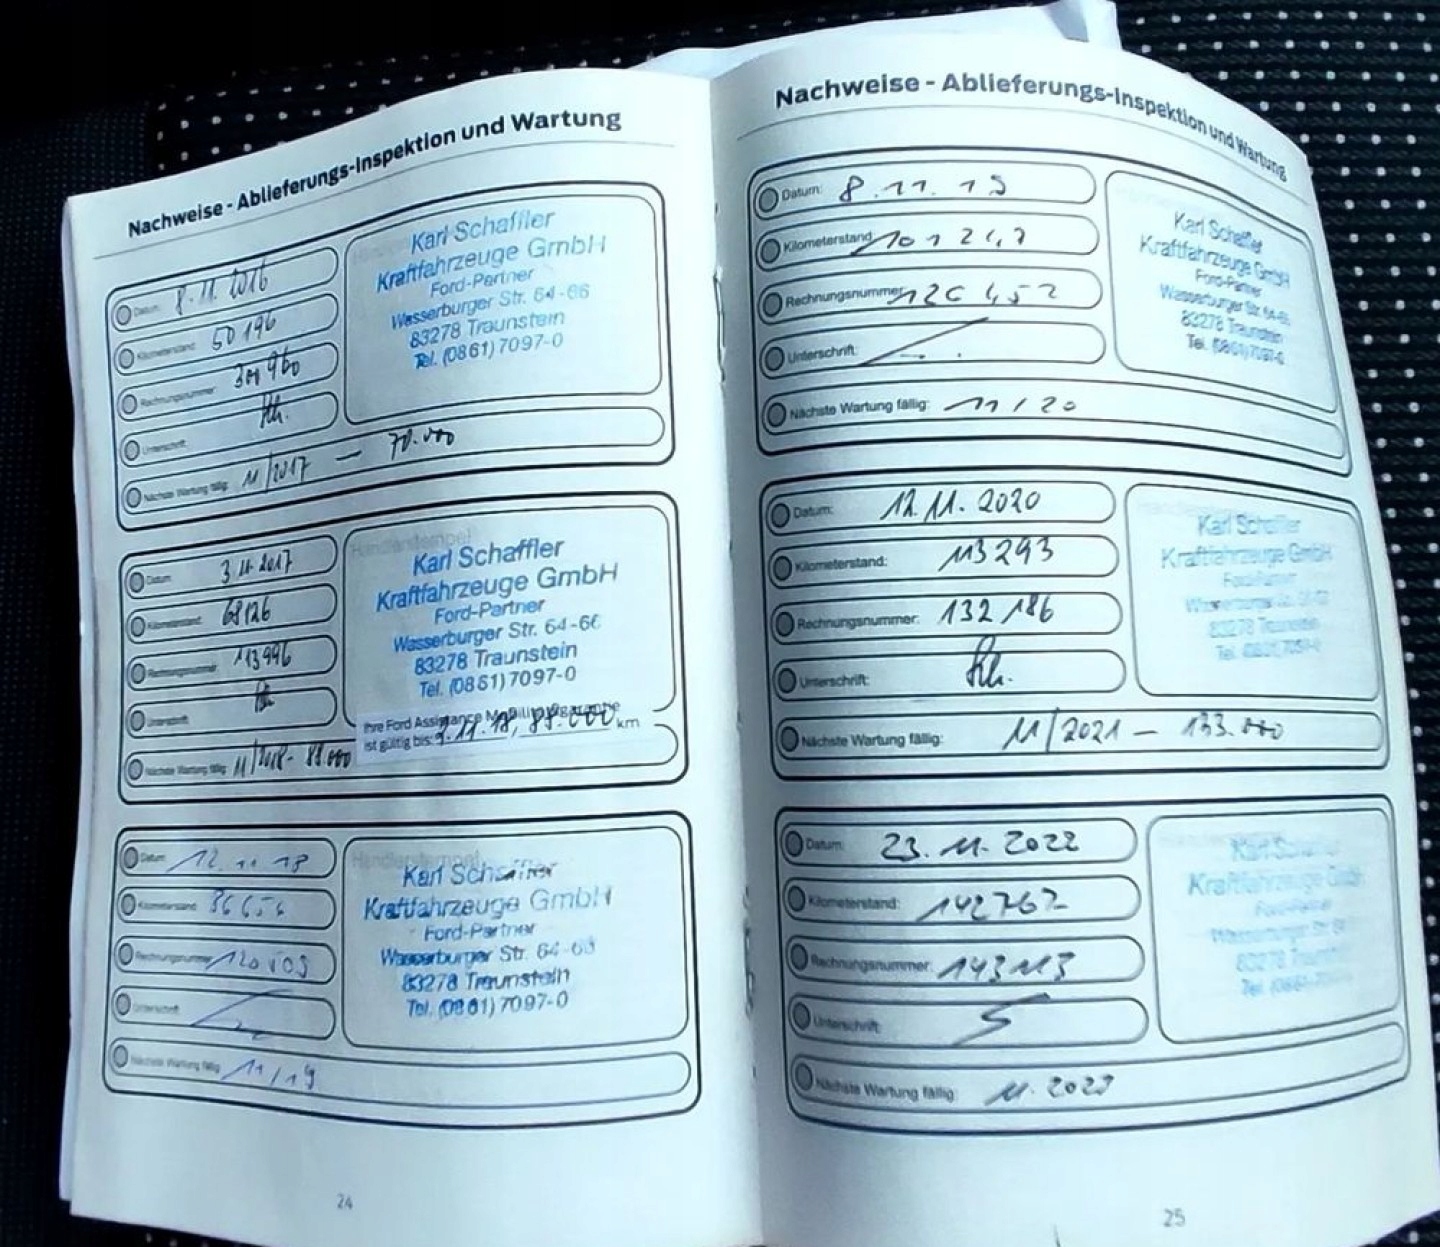 Nachweise - Ablieferungs-Inspektion und Wartung
Datum: 8.11.2016
Kilometerstand: 50196
Rechnungsnummer: 300960
Unterschrift:
Nächste Wartung fällig: 11/2017 — 70.000
Karl Schaffler
Kraftfahrzeuge GmbH
Ford-Partner
Wasserburger Str. 64-66
83278 Traunstein
Tel. (0861) 7097-0
Datum: 3.11.2017
Kilometerstand: 68126
Rechnungsnummer: 113996
Unterschrift:
Nächste Wartung fällig: 11/2018 - 88000
Händlerstempel
Karl Schaffler
Kraftfahrzeuge GmbH
Ford-Partner
Wasserburger Str. 64-66
83278 Traunstein
Tel. (0861) 7097-0
Ihre Ford Assistance Mobilitätsgarantie
ist gültig bis: 3.11.18, 88.000 km
Datum: 12.11.18
Kilometerstand: 86656
Rechnungsnummer:
Unterschrift:
Nächste Wartung fällig: 11/19
Händlerstempel
Karl Schaffler
Kraftfahrzeuge GmbH
Ford-Partner
Wasserburger Str. 64-66
83278 Traunstein
Tel. (0861) 7097-0
24
Nachweise - Ablieferungs-Inspektion und Wartung
Datum: 8.11.19
Kilometerstand:
Rechnungsnummer:
Unterschrift:
Nächste Wartung fällig: 11/20
Karl Schaffler
Kraftfahrzeuge GmbH
Ford-Partner
Wasserburger Str. 64-66
83278 Traunstein
Tel. (0861) 7097-0
Datum: 12.11.2020
Kilometerstand: 113293
Rechnungsnummer: 132186
Unterschrift:
Nächste Wartung fällig: 11/2021 — 133.000
Karl Schaffler
Kraftfahrzeuge GmbH
Ford-Partner
Wasserburger Str. 64-66
83278 Traunstein
Tel. (0861) 7097-0
Datum: 23.11.2022
Kilometerstand: 142767
Rechnungsnummer: 143113
Unterschrift:
Nächste Wartung fällig: 11.2023
Karl Schaffler
Kraftfahrzeuge GmbH
Ford-Partner
Wasserburger Str. 64-66
83278 Traunstein
Tel. (0861) 7097-0
25